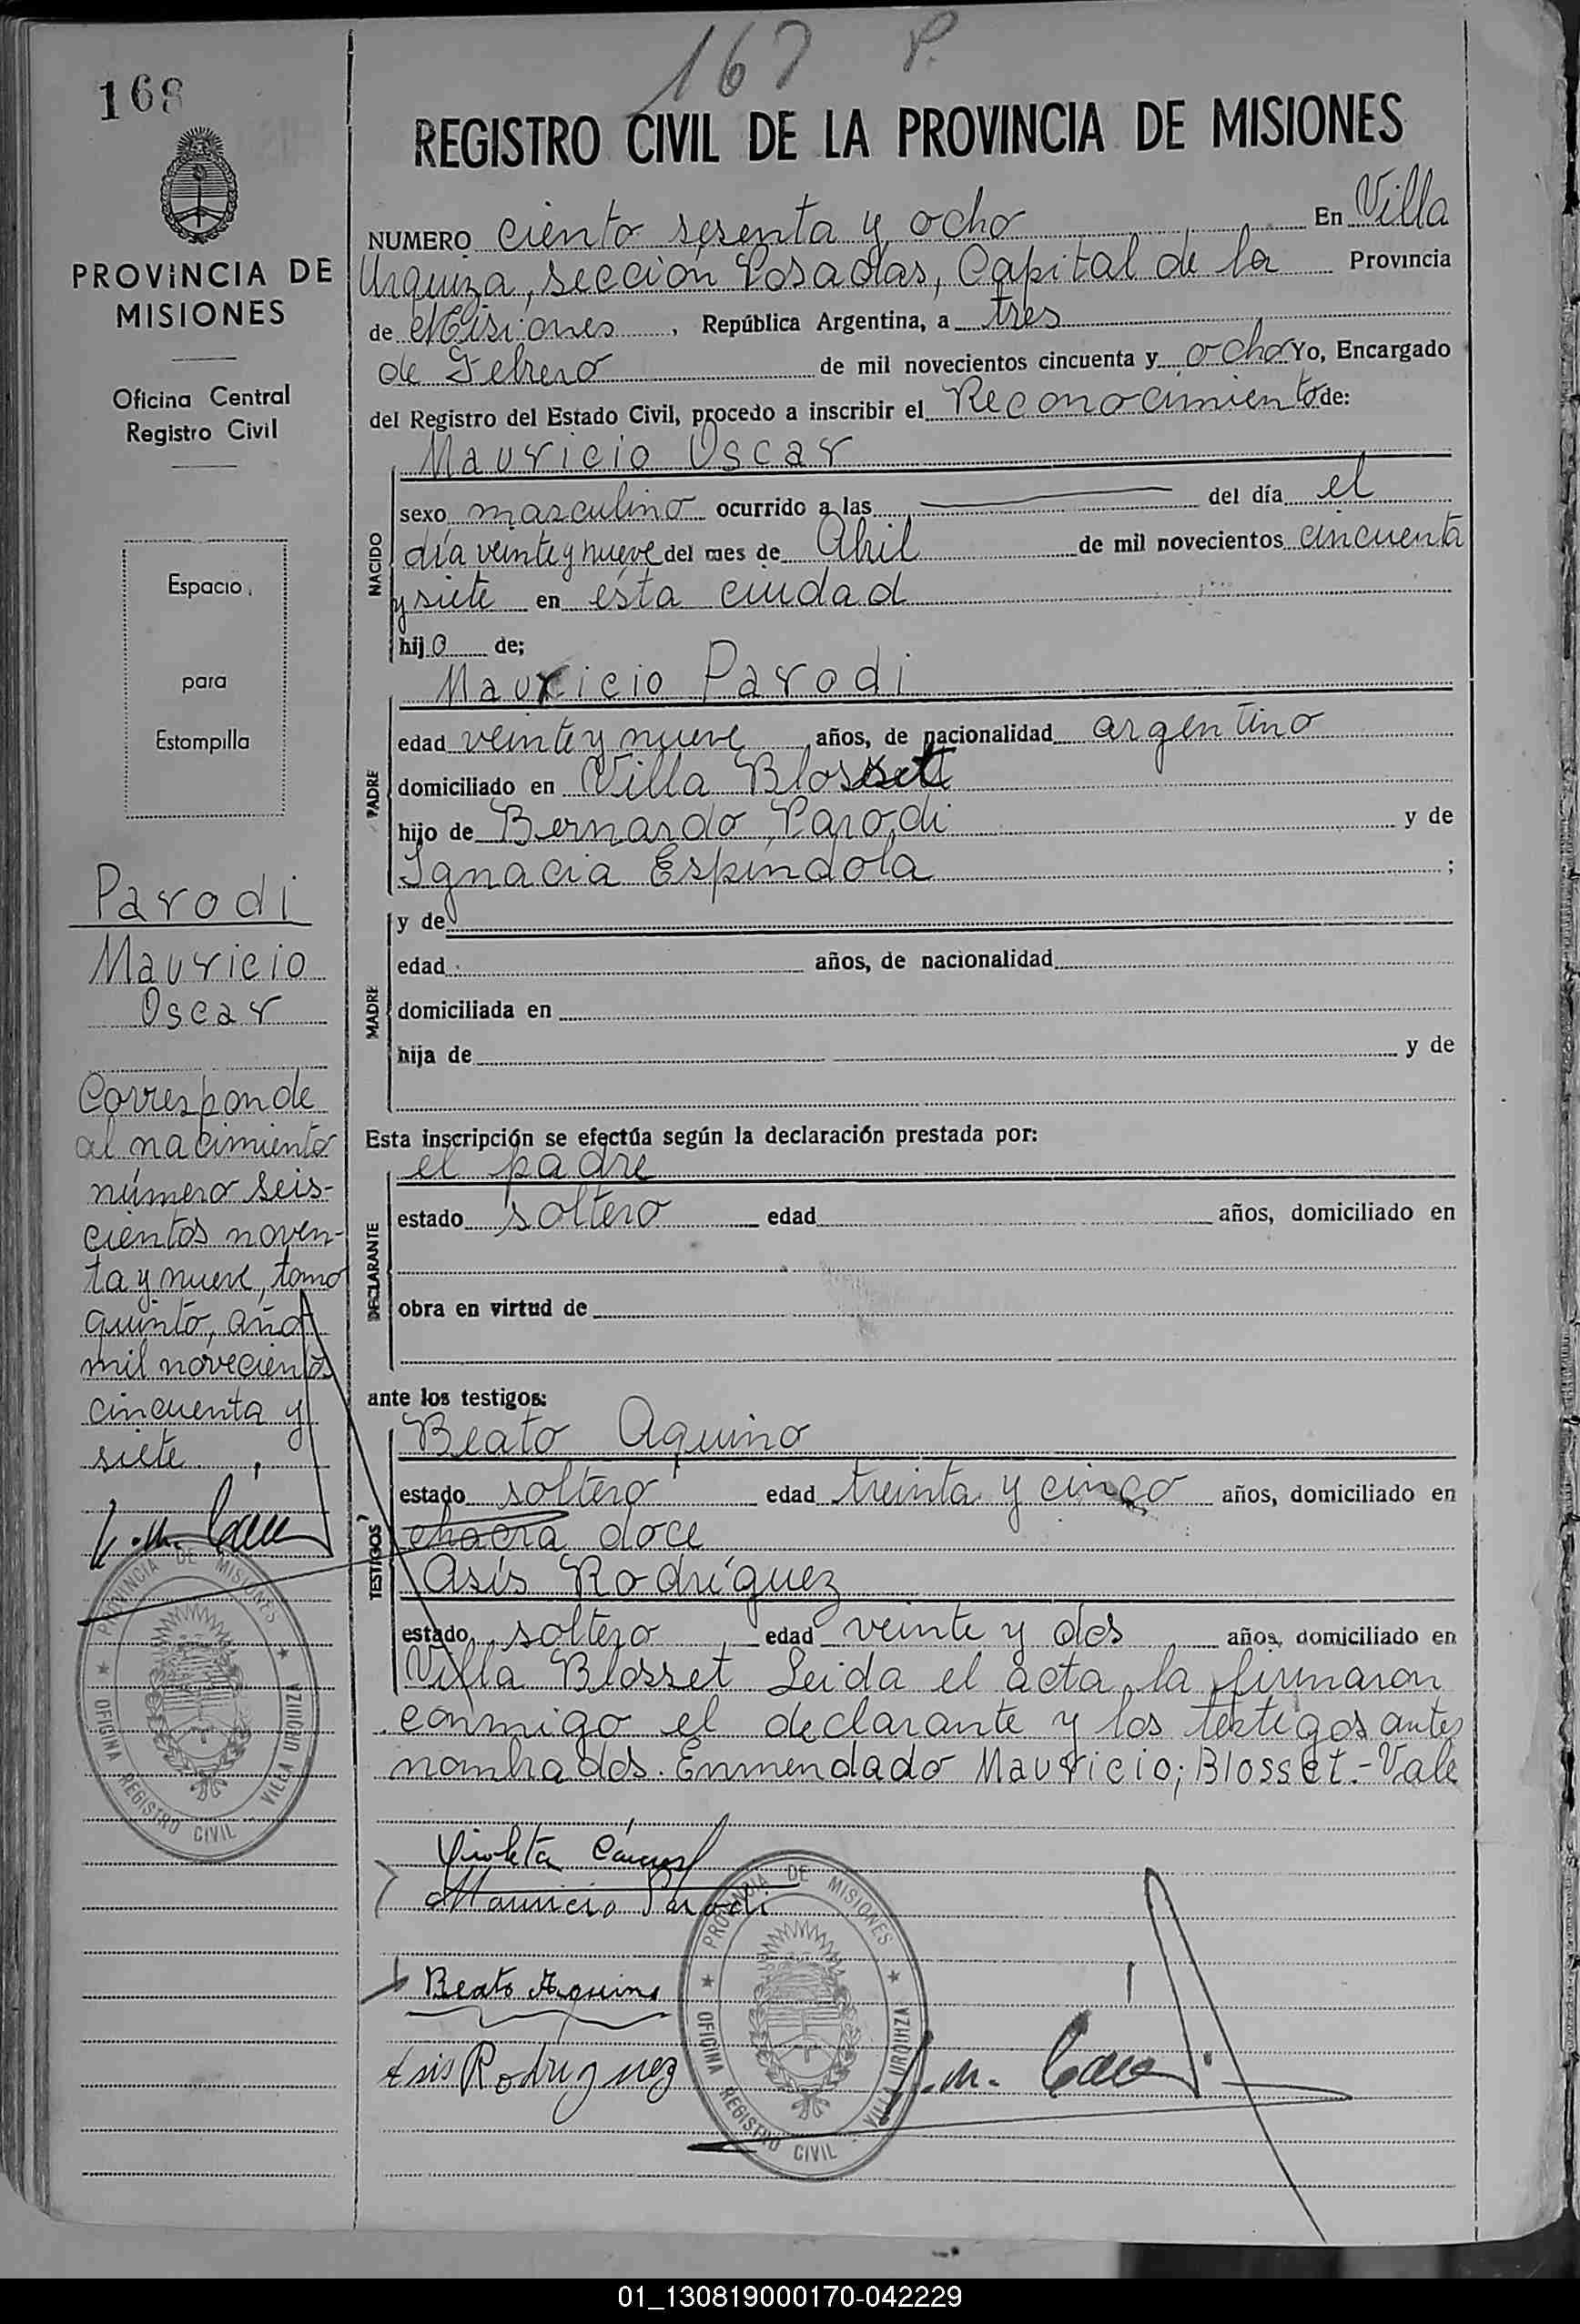 167 P.
168
REGISTRO CIVIL DE LA PROVINCIA DE MISIONES
PROVINCIA DE
MISIONES
Oficina Central
Registro Civil
Espacio
para
Estampilla
Parodi
Mauricio
Oscar
Corresponde
al nacimiento
número seis-
cientos noven-
ta y nueve, tomo
quinto, año
mil novecientos
cincuenta y
siete.
PROVINCIA DE MISIONES
OFICINA REGISTRO CIVIL - VILLA URQUIZA
NUMERO ciento sesenta y ocho En Villa
Urquiza, sección Posadas, Capital de la Provincia
de Misiones, República Argentina, a tres
de Febrero de mil novecientos cincuenta y ocho Yo, Encargado
del Registro del Estado Civil, procedo a inscribir el Reconocimiento de:
Mauricio Oscar
NACIDO
sexo masculino ocurrido a las del día el
día veinte y nueve del mes de Abril de mil novecientos cincuenta
y siete en ésta ciudad
hijo de;
Mauricio Parodi
PADRE
edad veinte y nueve años, de nacionalidad argentino
domiciliado en Villa Blosset
hijo de Bernardo Parodi y de
Ignacia Espíndola ;
MADRE
y de
edad años, de nacionalidad
domiciliada en
hija de y de
Esta inscripción se efectúa según la declaración prestada por:
el padre
DECLARANTE
estado soltero edad años, domiciliado en
obra en virtud de
ante los testigos:
Beato Aquino
TESTIGOS
estado soltero edad treinta y cinco años, domiciliado en
chacra doce
Asís Rodríguez
estado soltero, edad veinte y dos años, domiciliado en
Villa Blosset Leida el acta, la firmaron
conmigo el declarante y los testigos antes
nombrados. Enmendado Mauricio; Blosset.- Vale
Violeta
Mauricio Parodi
Beato Aquino
Asis Rodriguez
PROVINCIA DE MISIONES
OFICINA REGISTRO CIVIL - VILLA URQUIZA
01_130819000170-042229